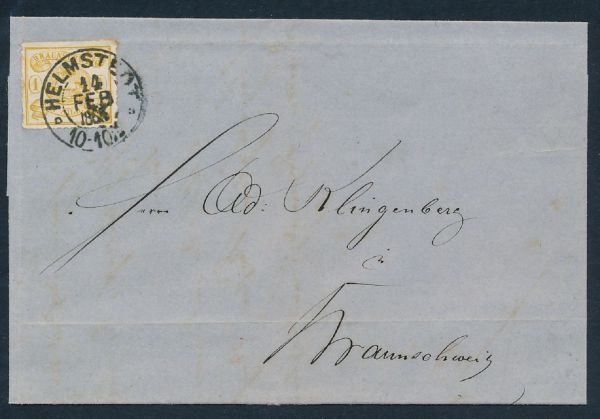 HELMSTEDT
14
FEB
10-10½
Herrn Ad: Klingenberg
in
Braunschweig